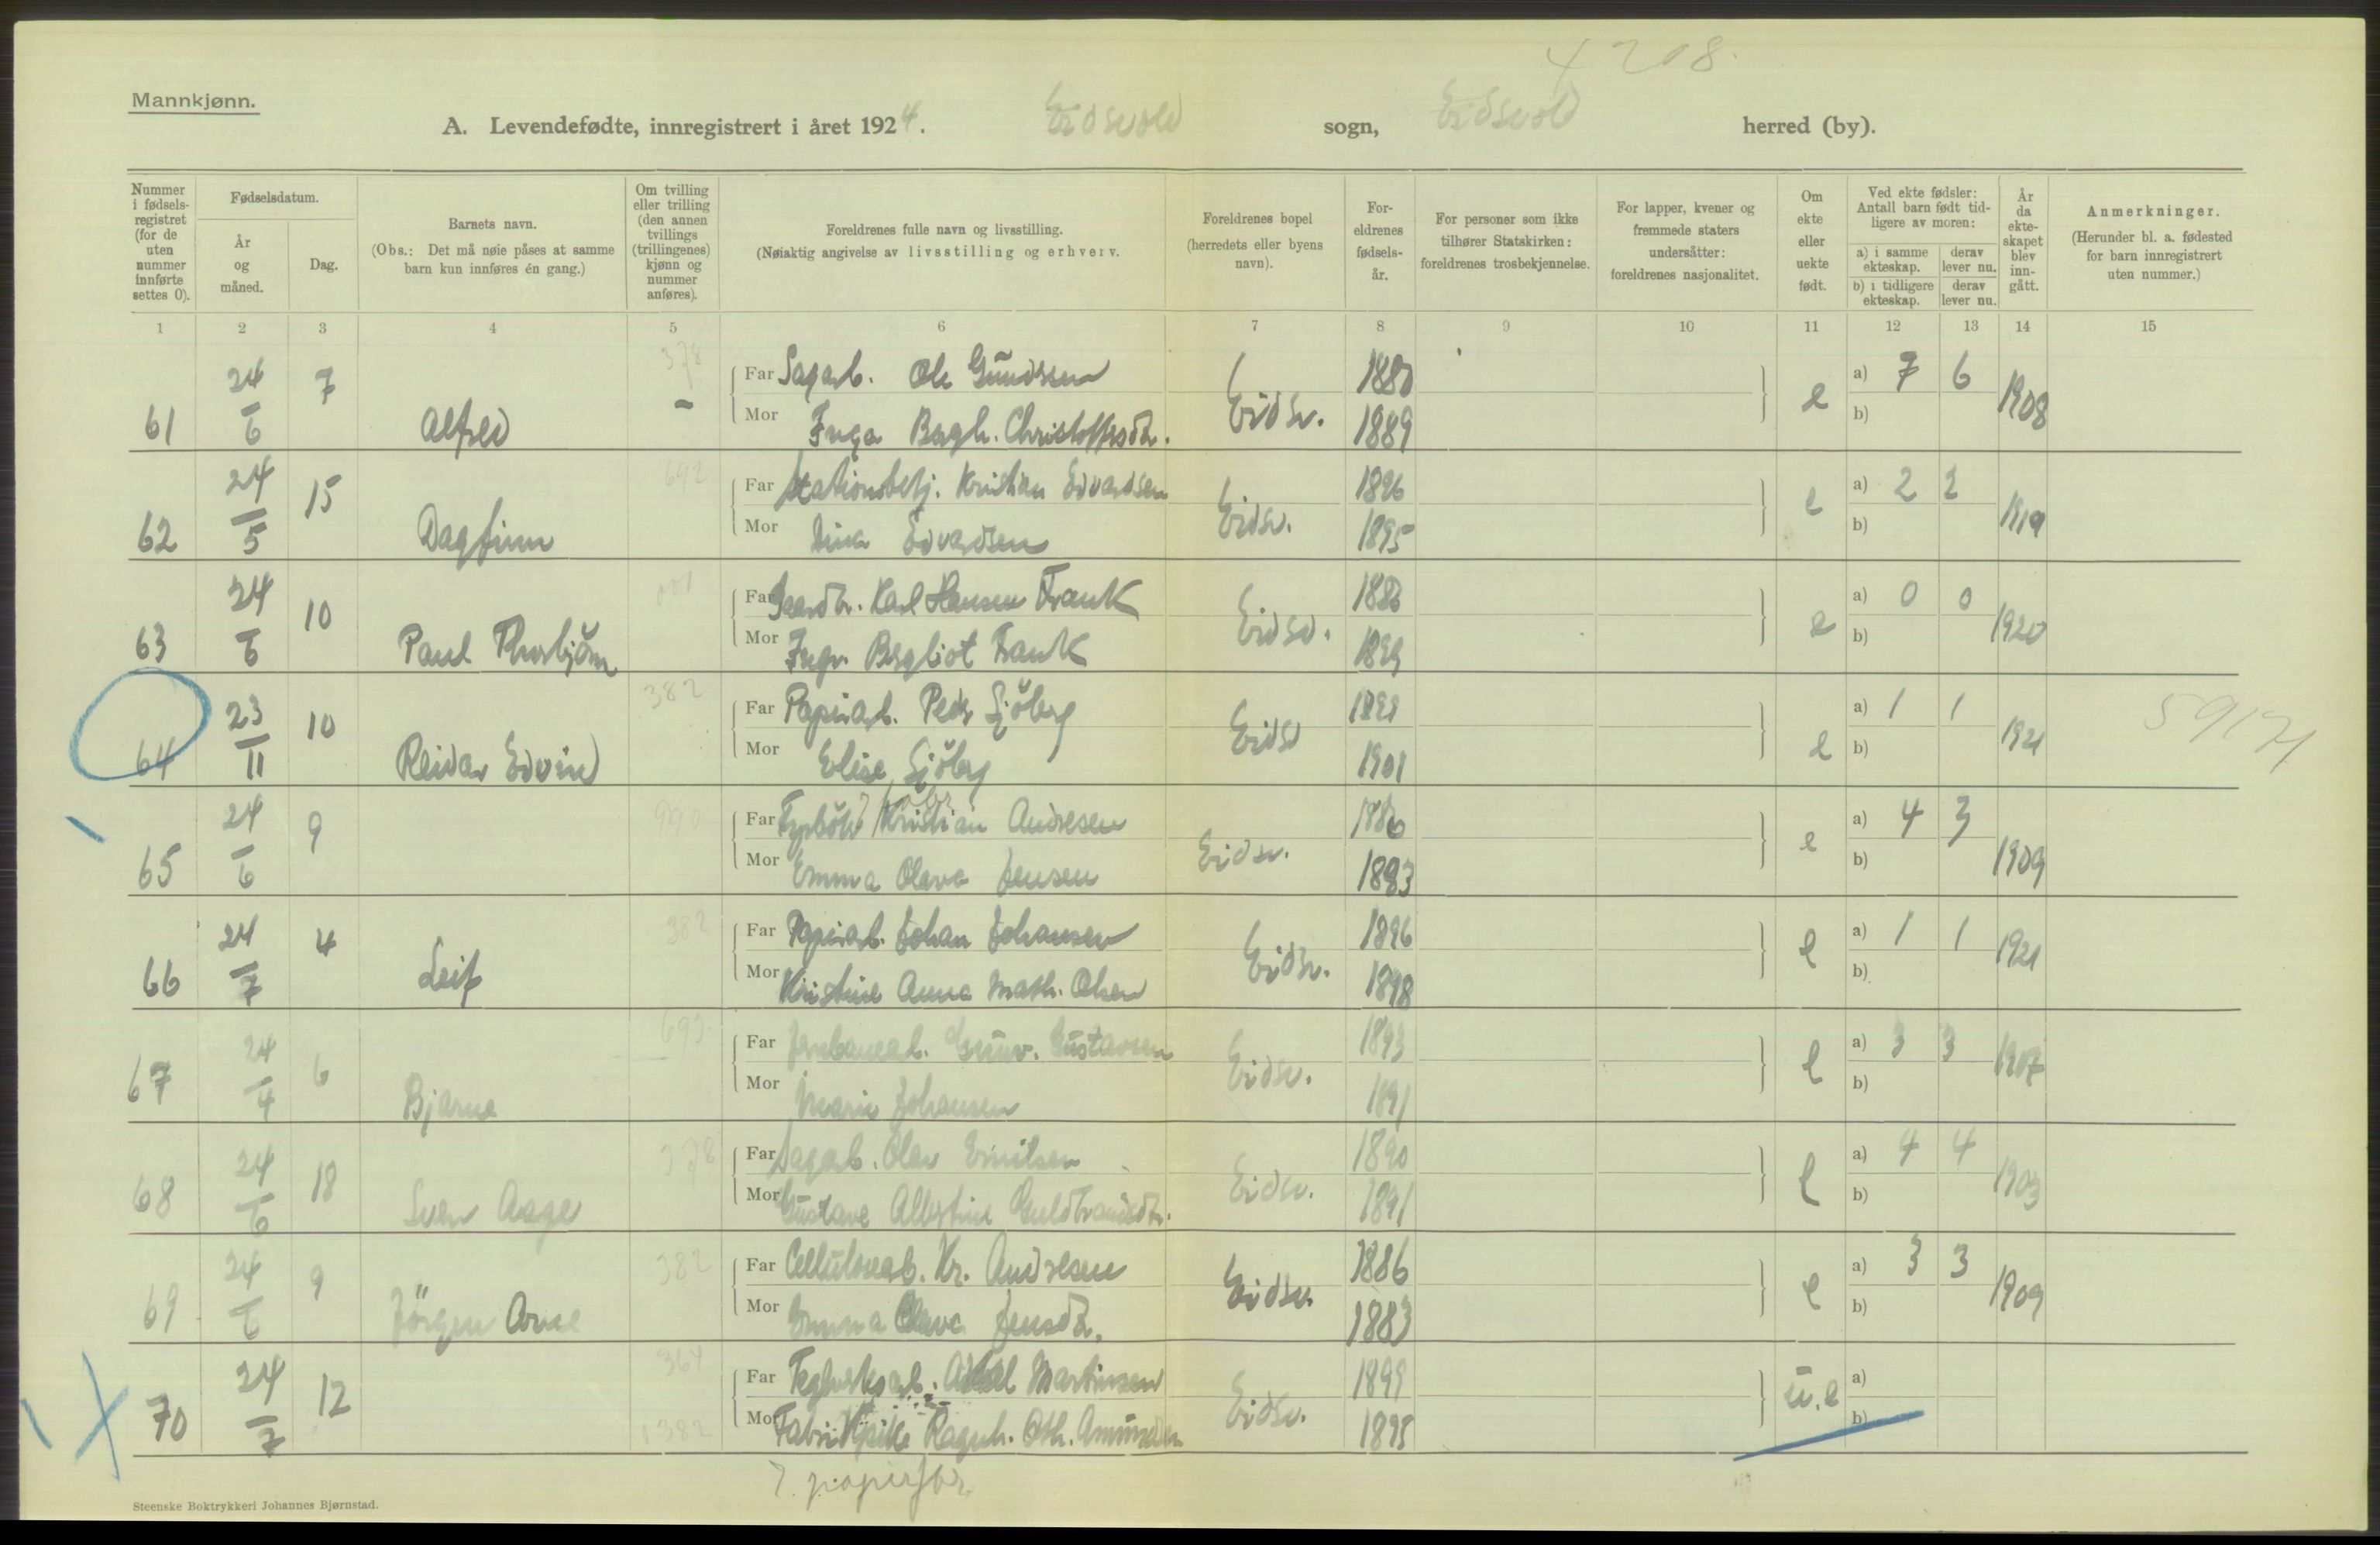 4208.
Mannkjønn.
A. Levendefødte, innregistrert i året 1924. Eidsvold sogn, Eidsvold herred (by).
Nummer i fødsels-registret (for de uten nummer innførte settes 0).
Fødselsdatum.
År og måned.
Dag.
Barnets navn.
(Obs.: Det må nøie påses at samme barn kun innføres én gang.)
Om tvilling eller trilling (den annen tvillings (trillingenes) kjønn og nummer anføres).
Foreldrenes fulle navn og livsstilling.
(Nøiaktig angivelse av livsstilling og erhverv.
Foreldrenes bopel (herredets eller byens navn).
For-eldrenes fødsels-år.
For personer som ikke tilhører Statskirken: foreldrenes trosbekjennelse.
For lapper, kvener og fremmede staters undersåtter: foreldrenes nasjonalitet.
Om ekte eller uekte født.
Ved ekte fødsler: Antall barn født tid-ligere av moren:
a) i samme ekteskap. derav lever nu.
b) i tidligere ekteskap. derav lever nu.
År da ekte-skapet blev inn-gått.
Anmerkninger.
(Herunder bl. a. fødested for barn innregistrert uten nummer.)
1 2 3 4 5 6 7 8 9 10 11 12 13 14 15
378
24 7 Far Sagarb. Ole Gundersen 1880 a) 7 6
61 6 Alfred - Mor Inga Bergh. Christoffersdtr. Eidsv. 1889 e b) 1908
692
24 15 Far Stationsbetj. Kristian Edvardsen 1896 a) 2 2
62 5 Dagfinn Mor Edvardsen Eidsv. 1895 e b) 1919
001
24 10 Far Gaardbr. Karl Hansen Frank 188 a) 0 0
63 6 Paul Thorbjörn Mor Ingr. Bergliot Frank Eidsv. 1899 e b) 1920
382
23 10 Far Papirarb. Peder Sjöberg 1899 a) 1 1 5917
64 11 Reidar Edvin Mor Elise Sjöberg Eidsv 1901 e b) 1921
990
24 9 Far Fyrböter Kristian Andresen 1886 a) 4 3
65 6 Mor Emma Olava Jensen Eidsv. 1883 e b) 1909
382
24 4 Far Papirarb. Johan Johansen 1896 a) 1 1
66 7 Leif Mor Kristine Anna Math. Olsen Eidsv. 1898 e b) 1921
24 6 Far Jernbanearb. Gunv. Gustavsen 1893 a) 3 3
67 4 Bjarne Mor Marie Johansen Eidsv. 1891 e b) 1907
378
24 18 Far Sagarb. Olav Emilsen 1890 a) 4 4
68 6 Sven Aage Mor Gustave Albertine Guldbrandsdtr. Eidsv. 1891 e b) 1903
382
24 9 Far Cellulosearb. Kr. Andresen 1886 a) 3 3
69 6 Jörgen Arne Mor Emma Olava Jensdtr. Eidsv. 1883 e b) 1909
364
24 12 Far Teglverksarb. Martinsen 1899 a)
70 7 Mor Fabrikpike Ragnh. Oth. Amundsen Eidsv. 1895 u.e b)
382
?. papirfbr.
Steenske Boktrykkeri Johannes Bjørnstad.